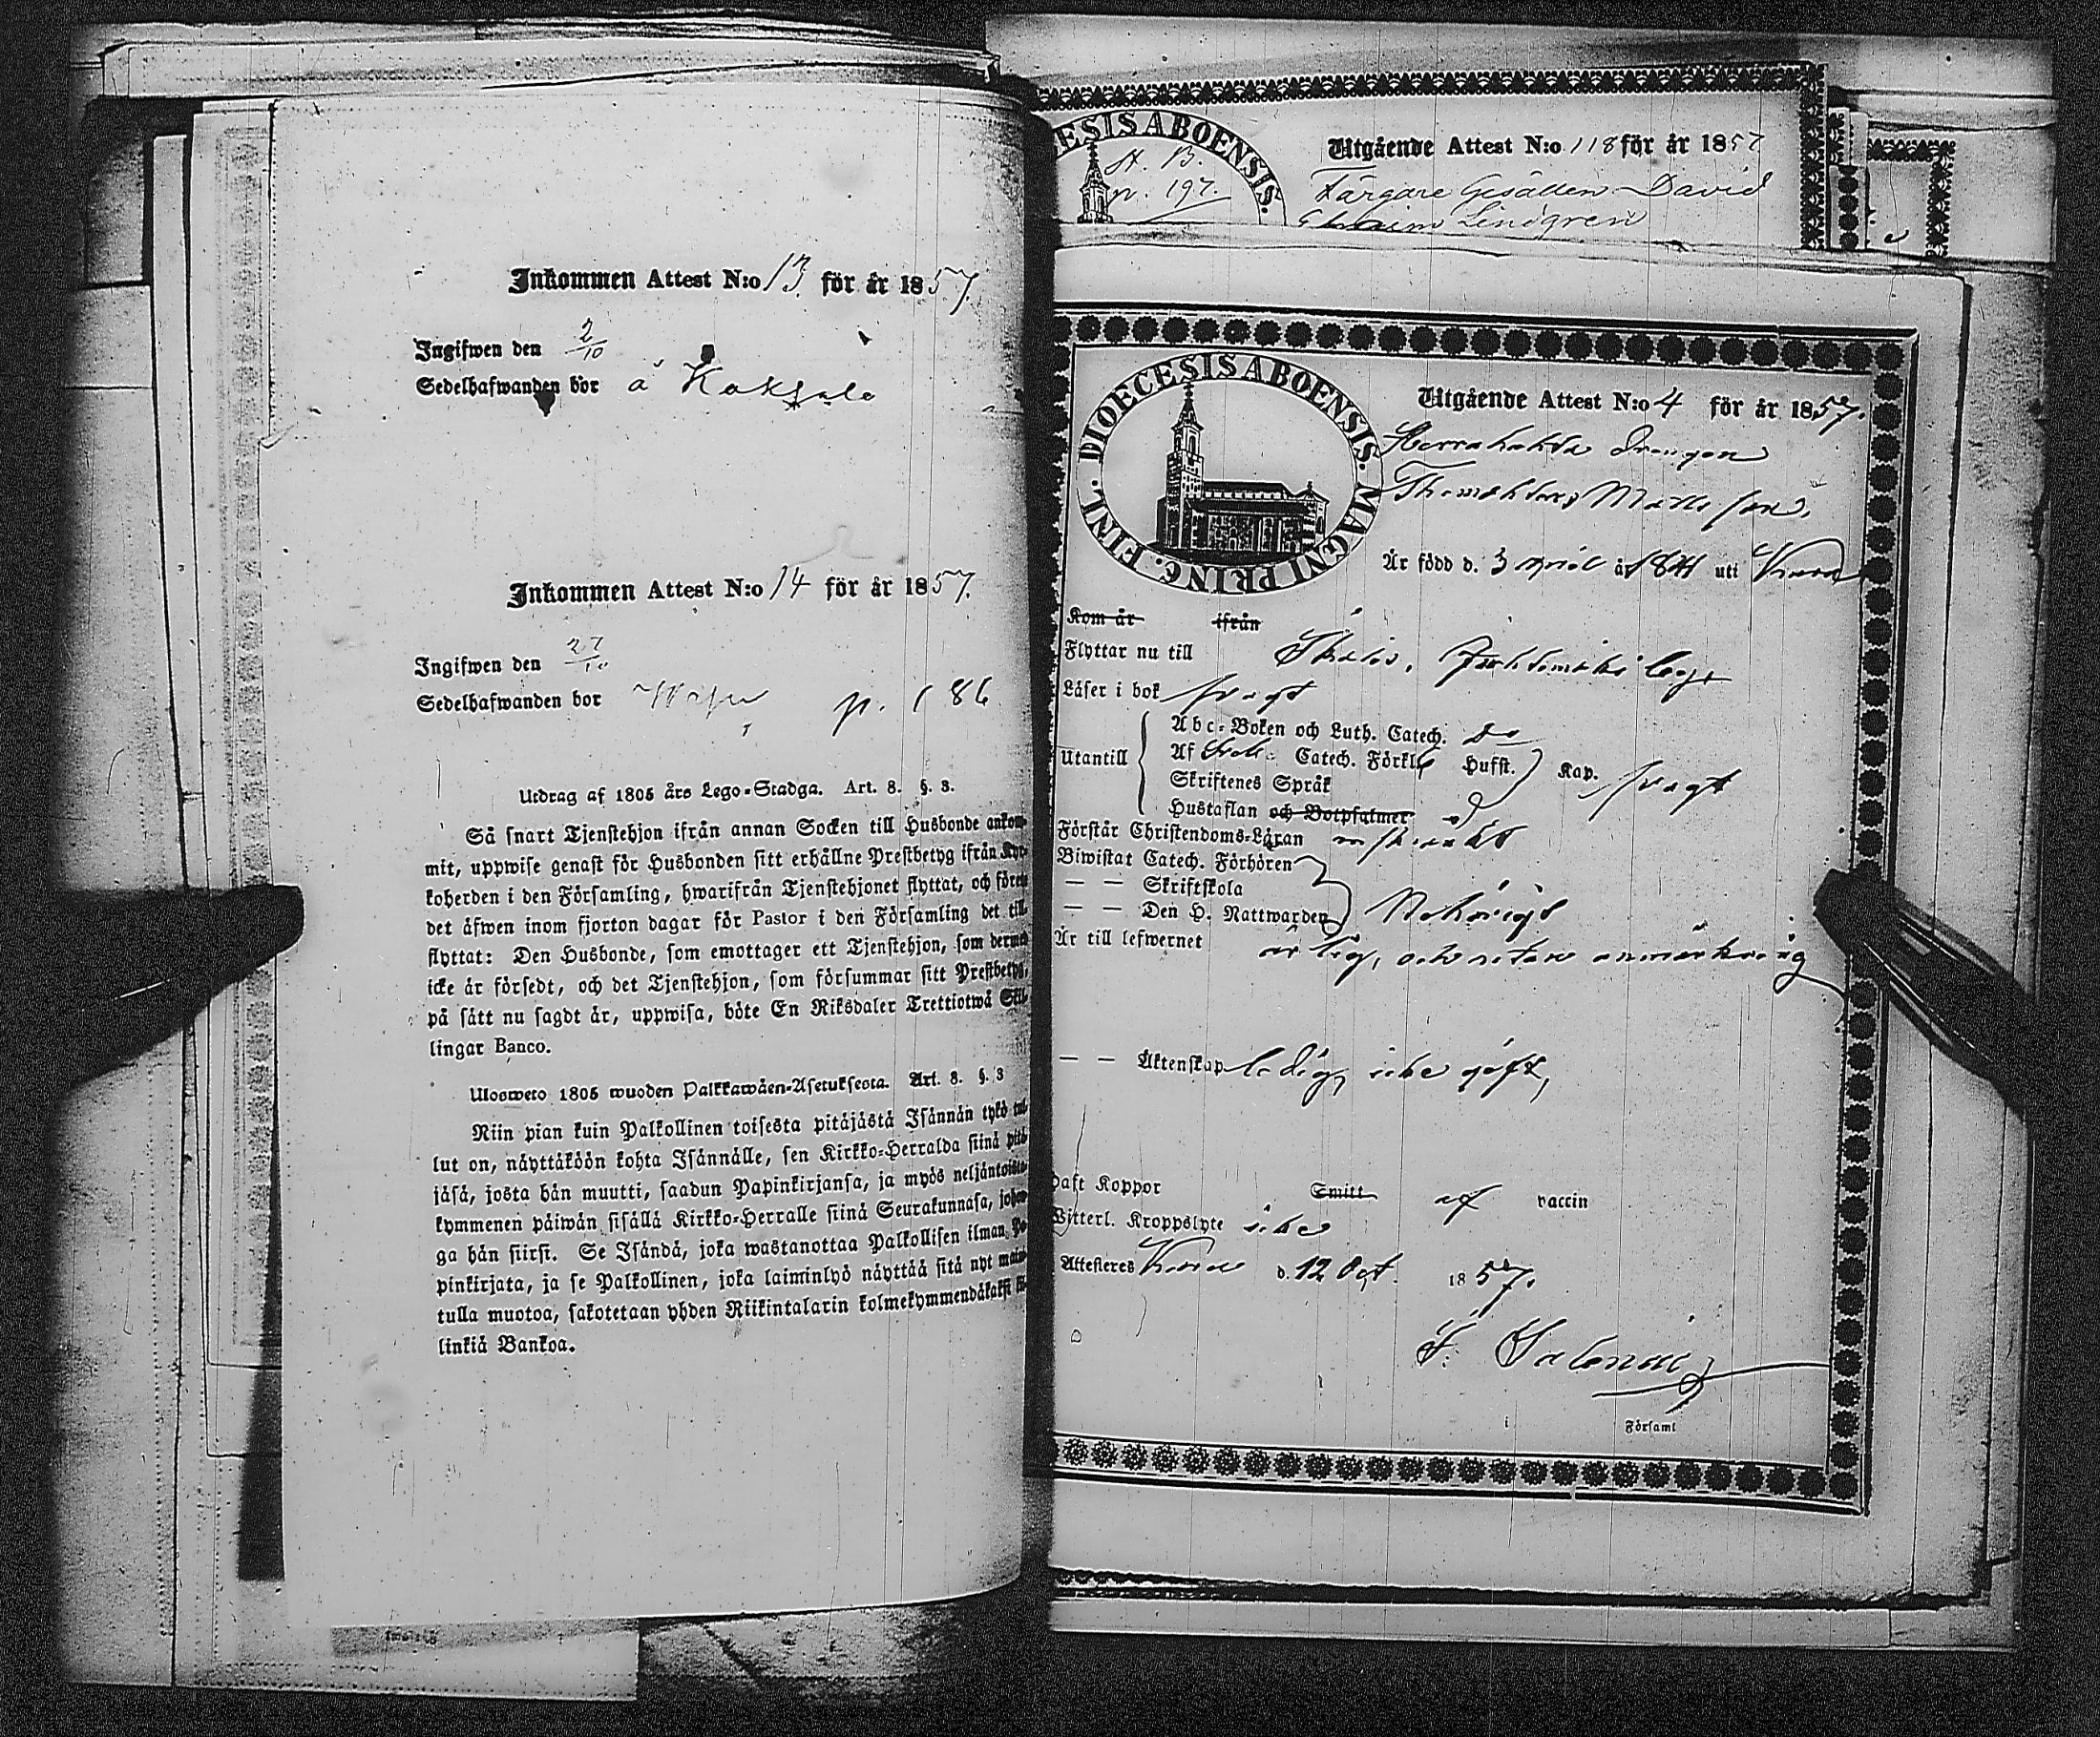 Inkommen Attest N:o 13. för år 1857.
Ingifwen den 2/10
Sedelhafwanden bor å Kaksalo
Inkommen Attest N:o 14 för år 1857.
Ingifwen den 27/10
Sedelhafwanden bor p. 186
Utdrag af 1805 års Lego-Stadga. Art. 8. §. 3.
Så snart Tjenstehjon ifrån annan Socken till Husbonde ankom-
mit, uppwise genast för Husbonden sitt erhållne Prestbetyg ifrån Kyr-
koherden i den Församling, hwarifrån Tjenstehjonet flyttat, och förete
det äfwen inom fjorton dagar för Pastor i den Församling det till
flyttat: Den Husbonde, som emottager ett Tjenstehjon, som dermed
icke är försedt, och det Tjenstehjon, som försummar sitt Prestbetyg,
på sätt nu sagdt är, uppwisa, böte En Riksdaler Trettiotwå Skil-
lingar Banco.
Uloswеto 1805 wuoden Palkkawäen-Asetuksesta. Art. 8. §. 3
Niin pian kuin Palkollinen toisesta pitäjästä Isännän tykö tul-
lut on, näyttäköön kohta Isännälle, sen Kirkko-Herralda siinä pitä-
jäsä, josta hän muutti, saadun Papinkirjansa, ja myös neljäntoista-
kymmenen päiwän sisällä Kirkko-Herralle siinä Seurakunnasa, johon-
ga hän siirsi. Se Isändä, joka wastanottaa Palkollisen ilman Pa-
pinkirjata, ja se Palkollinen, joka laiminlyö näyttää sitä nyt maini-
tulla muotoa, sakotetaan yhden Riikintalarin kolmekymmendäkaksi kil-
linkiä Bankoa.
ESIS ABOENSIS.
St. B.
p. 197.
Utgående Attest N:o 118 för år 1857
Färgare Gesällen David
Ephraim Lindgren
DIOECESIS ABOENSIS. MAGNI PRINC. FINL.
Utgående Attest N:o 4 för år 1857.
Drengen
Matts son,
Är född d. 3 April år 1841 uti
Kom år ifrån
Flyttar nu till
Läser i bok swagt
Utantill
Abc-Boken och Luth. Catech. Do
Af Catech. Förkl. Hufst. Kap. swagt
Skriftenes Språk
Hustaflan och Botpsalmer
Förstår Christendoms-Läran
Biwistat Catech. Förhören
— — Skriftskola
— — Den H. Nattwarden behörigt
Är till lefwernet ärlig, och utan anmärkning
— — Äktenskap ledig, icke gift,
Haft Koppor Smitt af vaccin
Witterl. Kroppslyte icke
Attesteres d. 12 Oct. 1857.
i Församl